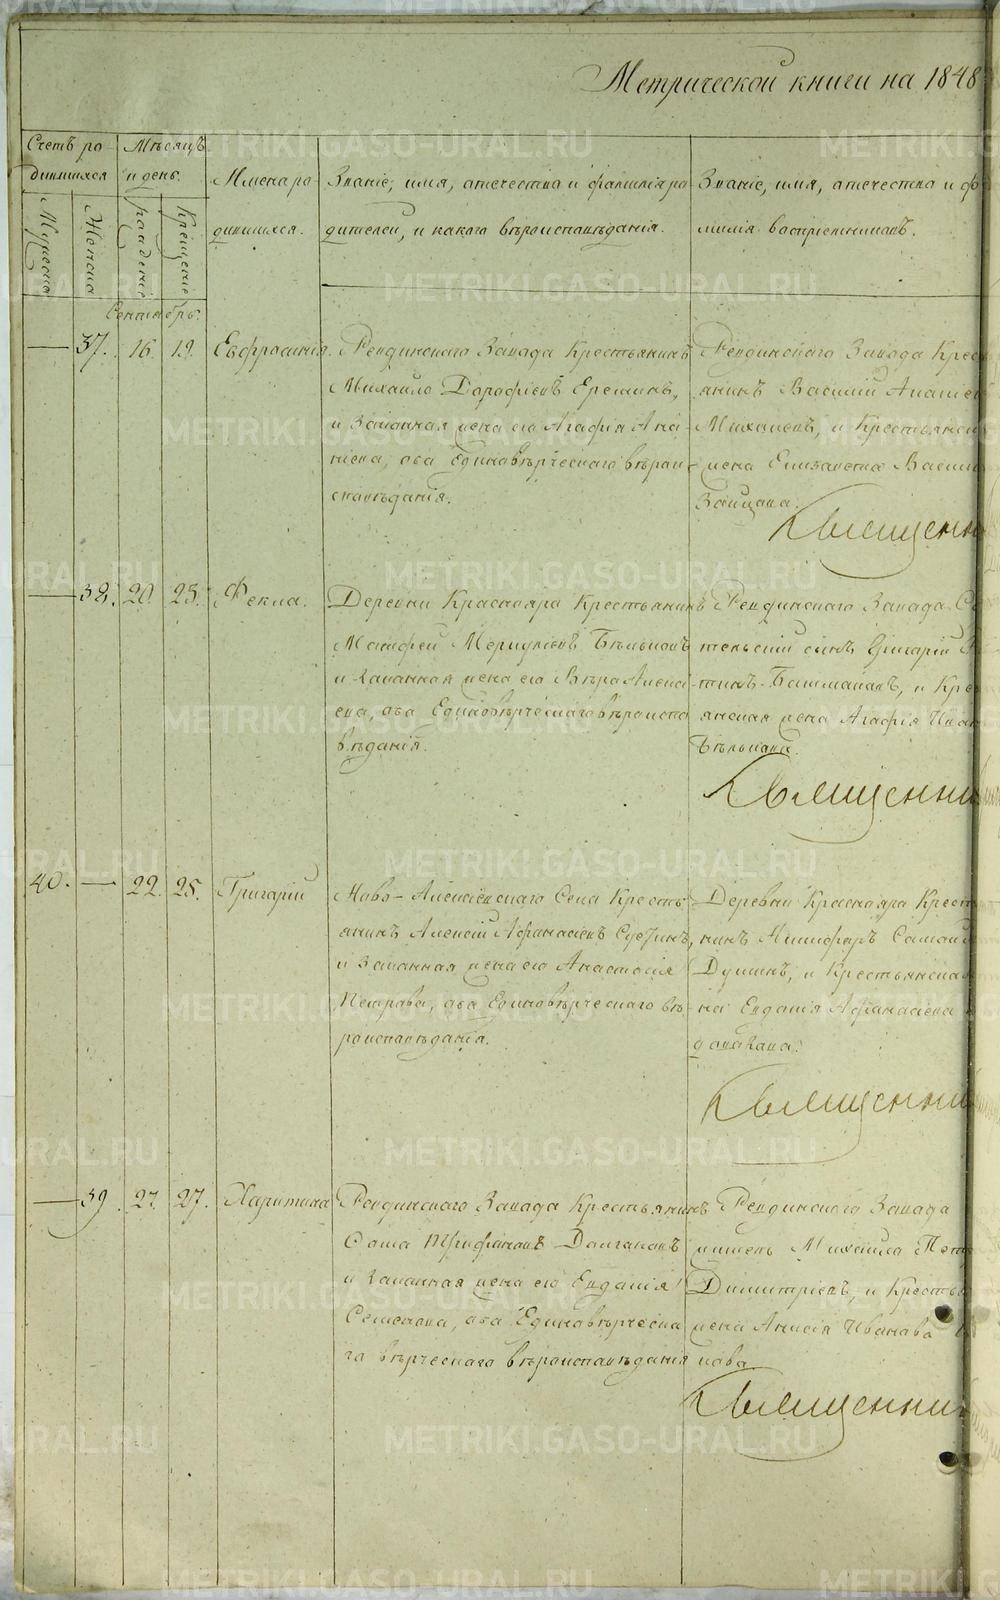 Метрической книги на 1848
Счетъ ро-
дившихся
Мужеска
Женска
Мѣсяцъ
и день.
рожденiе
Крещенiе
Имена ро-
дившихся.
Званiе, имя, отечество и фамилiя ро
дителей, и какого вѣроисповѣданiя.
Званiе, имя, отечество и фа
милiя воспрiемниковъ.
Сентябрь.
37. 16. 19. Евфросинiя. Ревдинскаго Завода Крестьянинъ
Михайло Дорофѣевъ Ереминъ,
и Законная жена его Агафiя Ана
нiева, оба Единовѣрческаго вѣрои-
сповѣданiя.
Ревдинскаго Завода Крес
янинъ Василiй Ананiев
Михалевъ, и Крестьянск
жена Елизавета Васил
Зайцова.
Священн
38. 20. 23. Фекла. Деревни Краснояра Крестьянинъ
Мокифей Меркурьевъ Бѣльковъ
и Законная жена его Вѣра Алексѣ
ева, оба Единовѣрческаго вѣроиспо
вѣданiя.
Ревдинскаго Завода С
тельскiй сынъ Григорiй
тинъ Башмаковъ, и Крес
янская жена Агафiя Иван
Бѣлькова.
Священни
40. 22. 25. Григорiй Ново-Алексѣевскаго Села Кресть
янинъ Алексiй Афанасiевъ
и Законная жена его Анастасiя
Петрова, оба Единовѣрческаго вѣ-
роисповѣданiя.
Деревни Краснояра Крест
нинъ Никифоръ
и Крестьянская
на Евдокiя Афанасiева
Священни
39. 27. 27. Харитина Ревдинскаго Завода Крестьянинъ
Сава Трифановъ Долгановъ
и Законная жена его Евдокiя
Семенова, оба Единовѣрческа
го вѣрческаго вѣроисповѣданiя
Ревдинскаго Завода
житель Михайло Пет
Димитрiевъ, и Крестья
жена Анисiя Иванова
нова.
Священни
METRIKI.GASO-URAL.RU